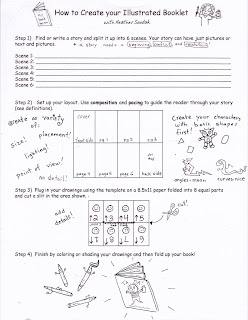 How to Create your Illustrated Booklet
with Heather Soodak
Step 1) Find or write a story and split it up into 6 scenes. Your story can have just pictures or
text and pictures. * a story needs a beginning, conflict, and resolution!
Scene 1:
Scene 2:
Scene 3:
Scene 4:
Scene 5:
Scene 6:
Step 2) Set up your layout. Use composition and pacing to guide the reader through your story
(see definitions).
create a variety of:
size!
placement!
lighting!
point of view!
detail!
cover
front side
pg 2
page 4
page 5
page 6
back side
Create your characters
with basic shapes
first!
angles=mean
curves=nice
Step 3) Plug in your drawings using the template on a 8.5x11 paper folded into 8 equal parts
and cut a slit in the area shown.
add
detail!
cut!
2
3
4
5
1
8
Step 4) Finish by coloring or shading your drawings and then fold up your book!